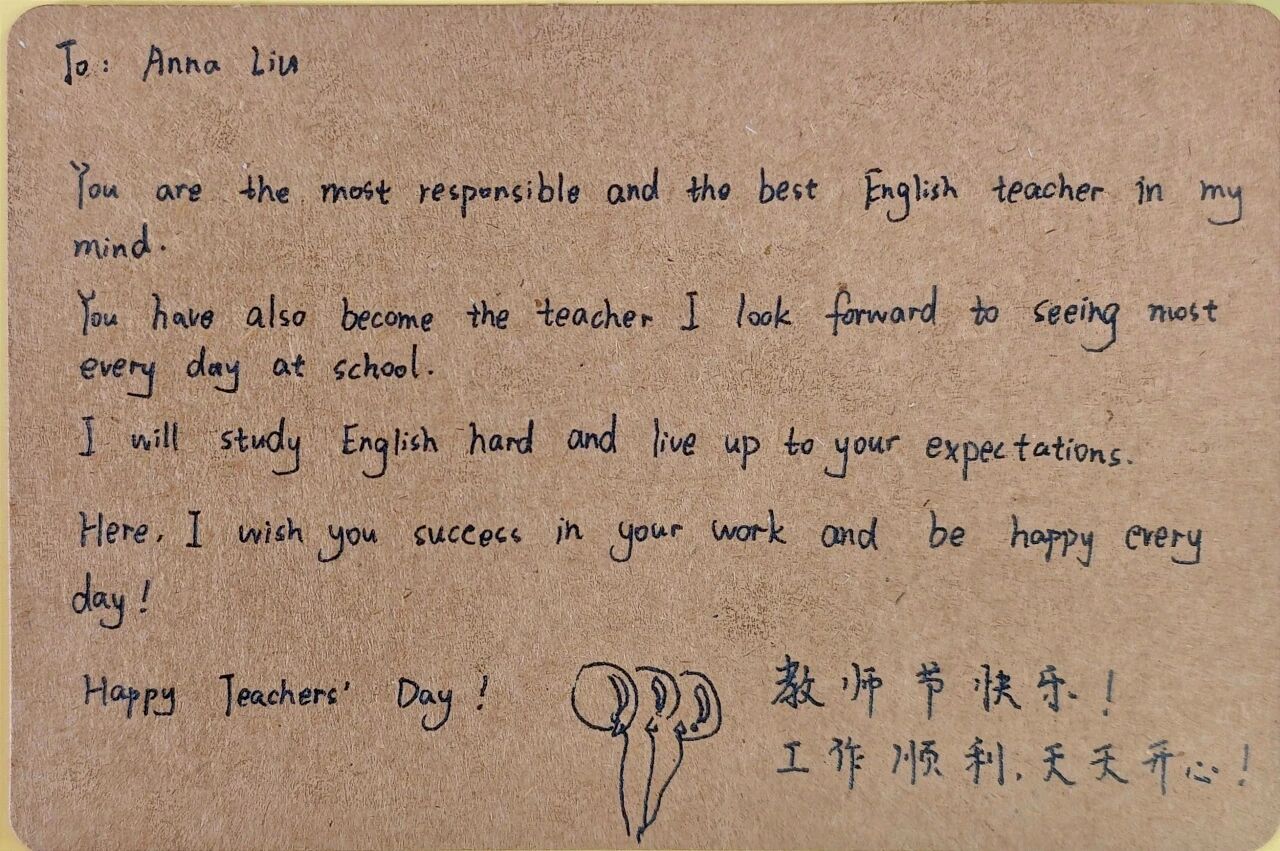 To: Anna Liu
You are the most responsible and the best English teacher in my
mind.
You have also become the teacher I look forward to seeing most
every day at school.
I will study English hard and live up to your expectations.
Here, I wish you success in your work and be happy every
day!
Happy Teachers' Day!
教师节快乐!
工作顺利,天天开心!